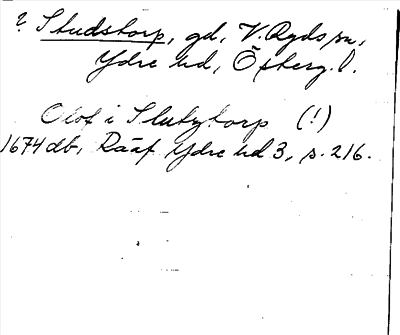 ? Studstorp, gd, V. Ryds sn,
Ydre hd, Östergl.
Olof i Slutztorp (!)
1674 db, Rääf Ydre hd 3, s. 216.